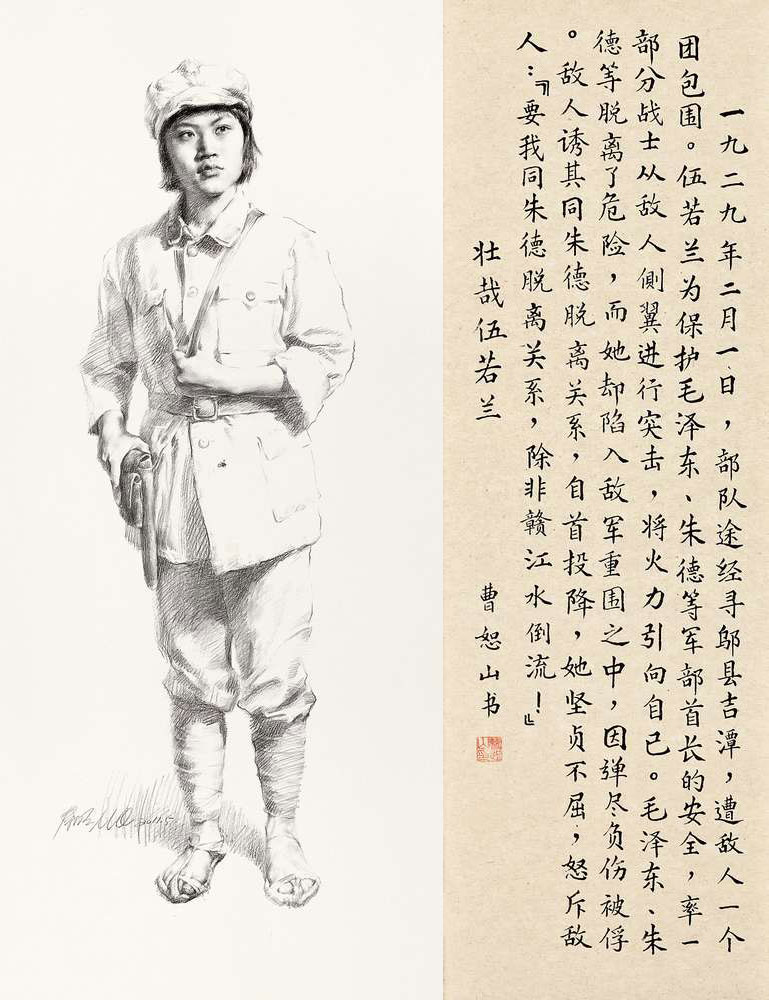 一九二九年二月一日，部队途经寻邬县吉潭，遭敌人一个
团包围。伍若兰为保护毛泽东、朱德等军部首长的安全，率一
部分战士从敌人侧翼进行突击，将火力引向自己。毛泽东、朱
德等脱离了危险，而她却陷入敌军重围之中，因弹尽负伤被俘
。敌人诱其同朱德脱离关系，自首投降，她坚贞不屈，怒斥敌
人：『要我同朱德脱离关系，除非赣江水倒流！』
壮哉伍若兰
曹恕山书